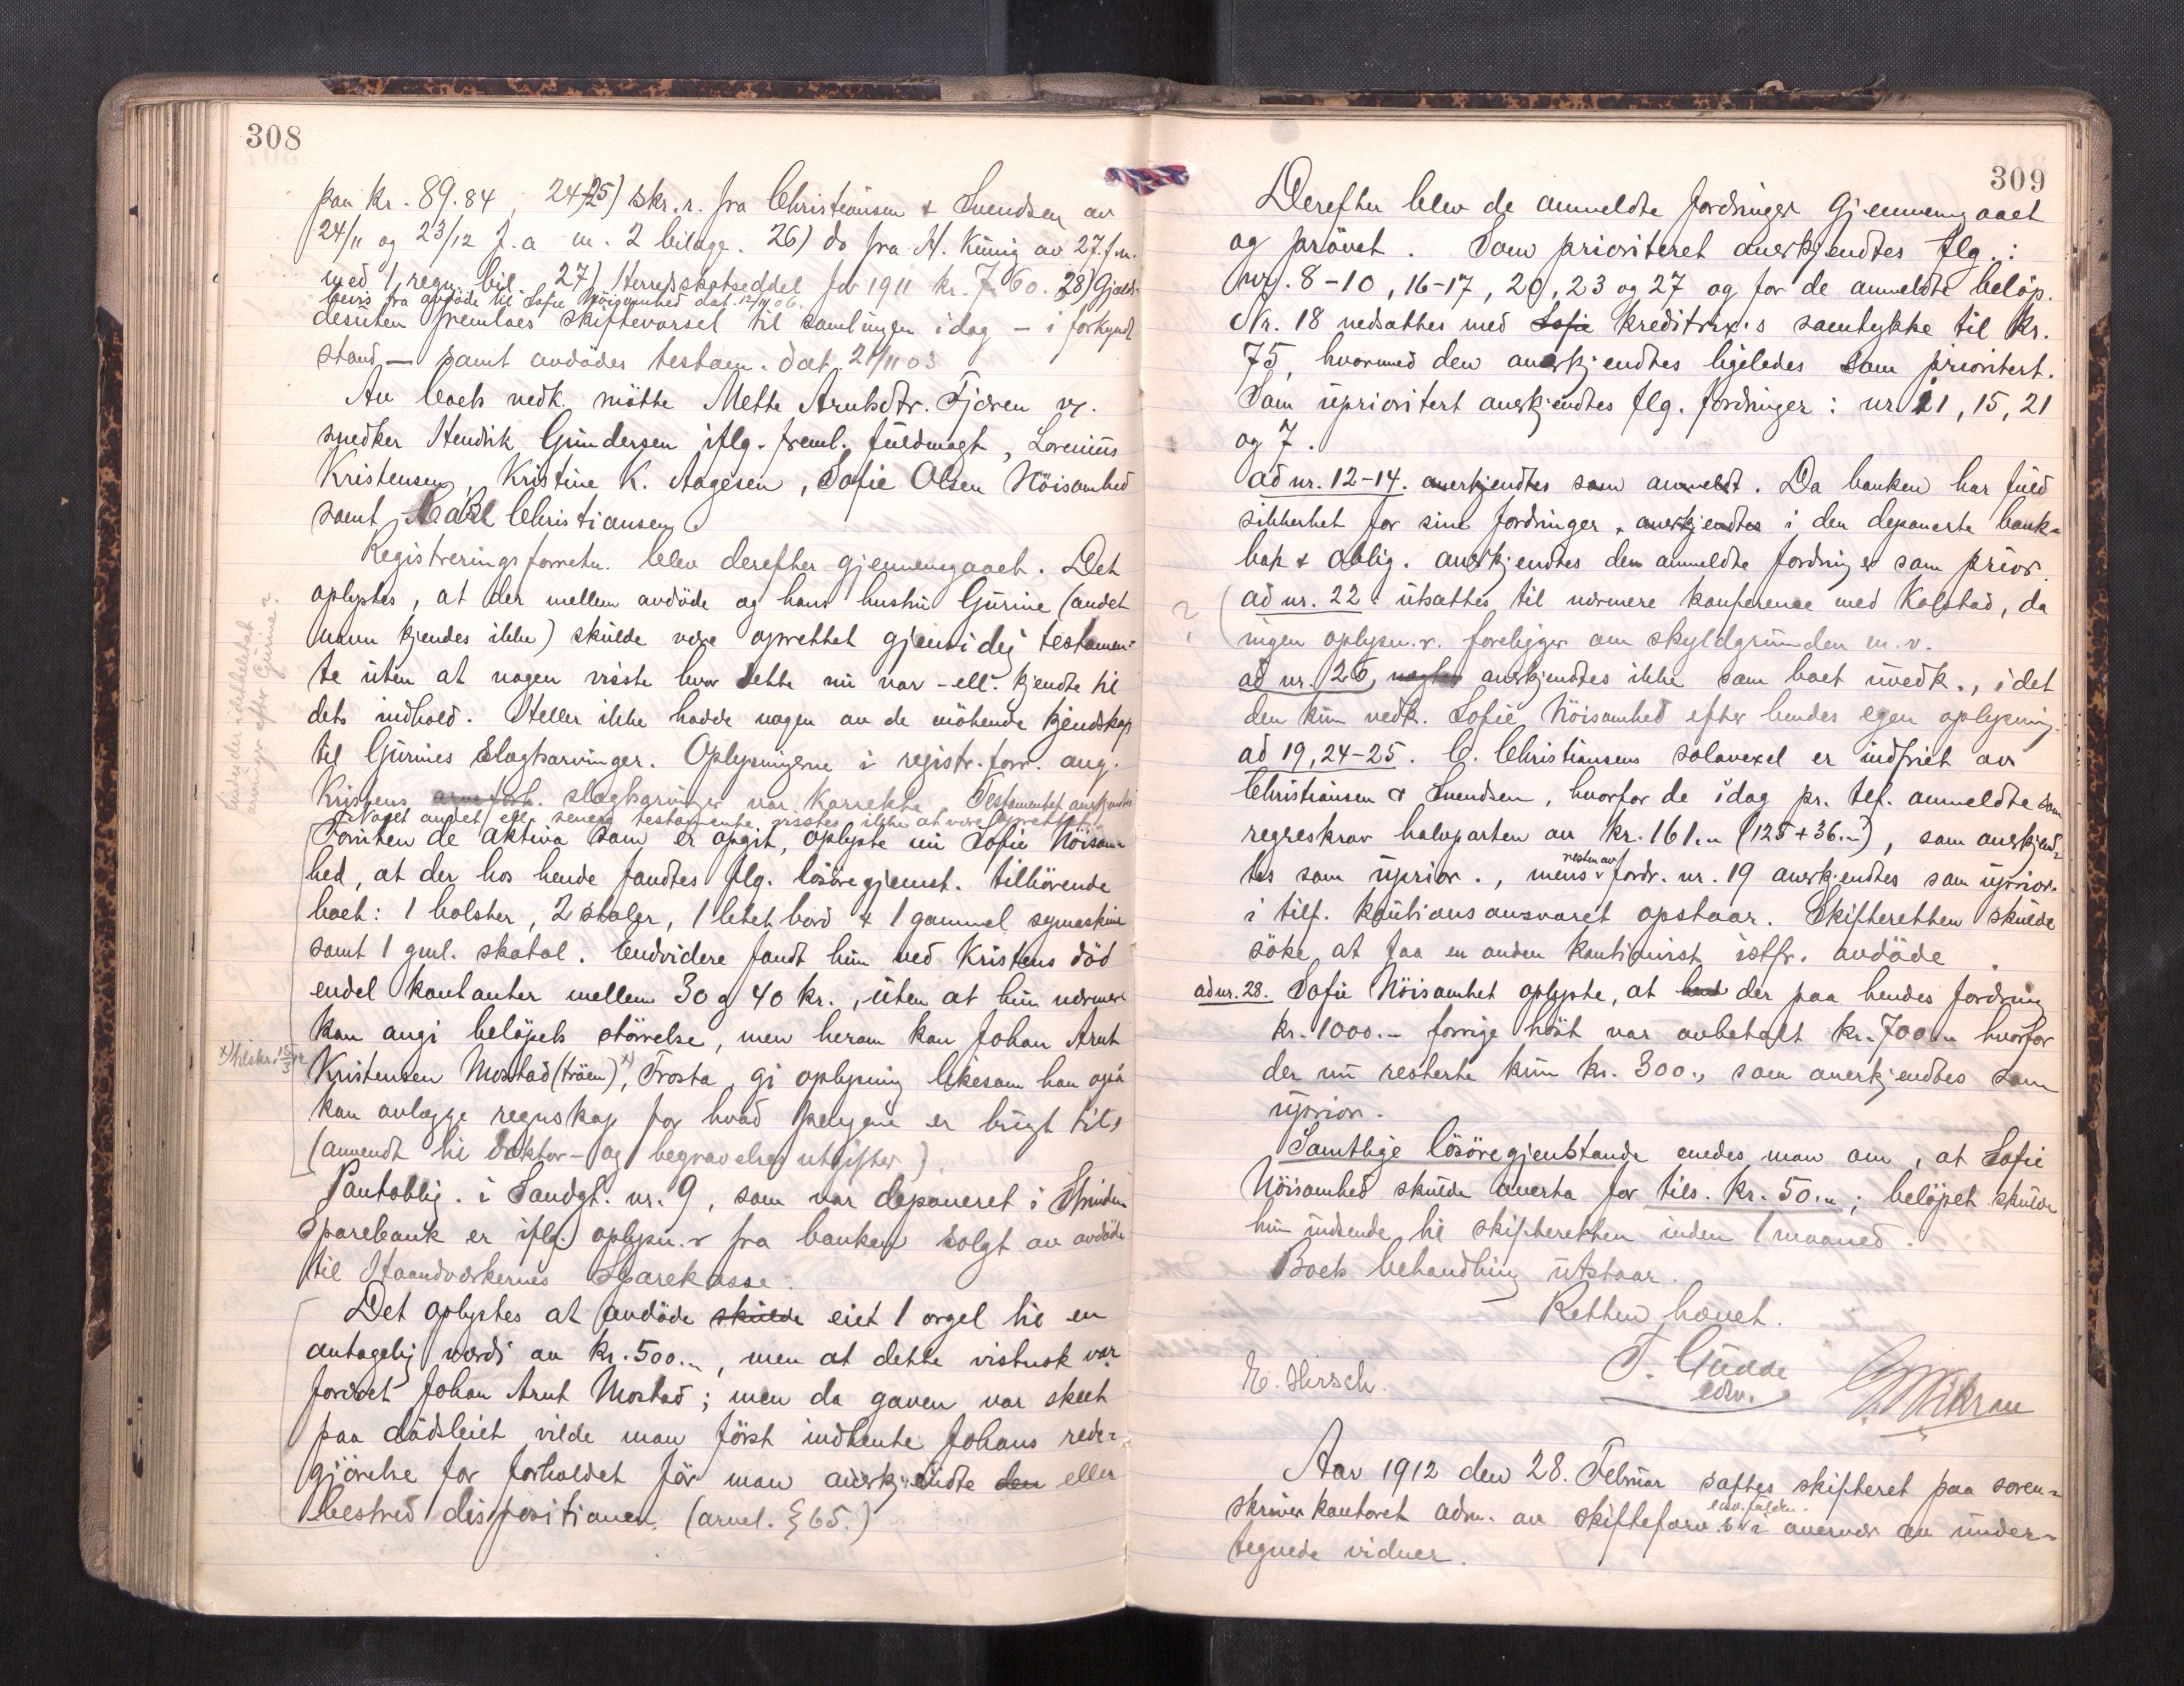 308
paa kr. 89.84, 24-25) skr. r. fra Christiansen & Svendsen av
24/11 og 23/12 f. a m. 2 bilage. 26) do fra H. Künig av 27. f. m.
med 1 regn. bil. 27) Herredsskatseddel for 1911 kr. 7.60. 28) Gjælds-
bevis fra avdöde til Sofie Nöisomhed dat. 12/11 06.
desuten fremlaes skiftevarsel til samlingen idag – i forkyndt
stand – samt avdödes testam. dat. 21/11 03
Av boets vedk. mötte Mette Arntsdtr. Fjæren v.
snedker Hendrik Gundersen iflg. freml. fuldmagt, Lorenius
Kristensen, Kristine K. Aagesen, Sofie Olsen Nöisomhed
samt Karl Christiansen
Registreringsforretn. blev derefter gjennemgaaet. Det
oplystes, at der mellem avdöde og hans hustru Gurine (andet
navn kjendes ikke) skulde være oprettet gjensidig testamen-
te uten at nogen visste hvor dette nu var – ell. kjendte til
dets indhold. Heller ikke hadde nogen av de mötende kjendskap
til Gurines slegtsarvinger. Oplysningerne i registr. forr. ang.
Kristens arveforh. slegtsarvinger var korrekte. Testamentet anerkjendtes
Noget andet ell. senere testamente visstes ikke at være oprettet.
Foruten de aktiva som er opgit, oplyste nu Sofie Nöisom-
hed, at der hos hende fandtes flg. lösöregjenst. tilhörende
boet: 1 bolster, 2 stoler, 1 litet bord & 1 gammel symaskine
samt 1 gml. skatol. Endvidere fandt hun ved Kristens död
endel kontanter mellem 30 og 40 kr., uten at hun nærmere
kan angi belöpets störrelse, men herom kan Johan Arnt
x) tilskr. 15/3 12
Kristensen Mostad (tröen) x), Frosta, gi oplysning likesom han også
kan avlægge regnskap for hvad pengene er brugt til,
(anvendt til doktor- og begravelses utgifter).
Pantoblig. i Sandgt. nr. 9, som var deponeret i Strinden
Sparebank er iflg. oplysn.r fra banken solgt av avdöde
til Haandværkernes Sparekasse.
Det oplystes at avdöde skulde eiet 1 orgel til en
antagelig værdi av kr. 500.–, men at dette vistnok var
foræret Johan Arnt Mostad; men da gaven var skeet
paa dödsleiet vilde man först indhente Johans rede-
gjörelse for forholdet för man anerkjendte den eller
bestred dispositionen. (arvel. § 65.)
309
Derefter blev de anmeldte fordringer gjennemgaaet
og prövet. Som prioriteret anerkjendtes flg.:
nr. 8-10, 16-17, 20, 23 og 27 og for de anmeldte belöp.
Nr. 18 nedsattes med Sofie kreditrix's samtykke til kr.
75, hvormed den anerkjendtes ligeledes som prioritert.
Som uprioritert anerkjendtes flg. fordringer: nr. 11, 15, 21
og 7.
ad nr. 12-14. anerkjendtes som anmeldt. Da banken har fuld
sikkerhet for sine fordringer, anerkjendtes i den deponerte bank-
bok & oblig. anerkjendtes den anmeldte fordring er som prior.
? ad nr. 22. utsattes til nærmere konferense med Kolstad, da
ingen oplysn.r. foreligger om skyldgrunden m. v.
ad nr. 26, anerkjendtes ikke som boet uvedk., idet
den kun vedk. Sofie Nöisomhed efter hendes egen oplysning.
ad 19, 24-25. C. Christiansens solavexel er indfriet av
Christiansen & Svendsen, hvorfor de idag pr. tlf. anmeldte som
regreskrav halvparten av kr. 161.– (125 + 36.–), som anerkjend-
tes som uprior., mens resten av fordr. nr. 19 anerkjendtes som uprior.
i tilf. kautionsansvaret opstaar. Skifteretten skulde
söke at faa en anden kautionist istf. avdöde.
ad nr. 28. Sofie Nöisomhet oplyste, at der paa hendes fordring
kr. 1000.– forrige höst var avbetalt kr. 700.– hvorfor
der nu resterte kun kr. 300., som anerkjendtes som
uprior.
Samtlige lösöregjenstande enedes man om, at Sofie
Nöisomhed skulde overta for tils. kr. 50.–; belöpet skulde
hun indsende til skifteretten inden 1 maaned.
Boets behandling utstaar.
Retten hævet.
E. Hirsch. T. Gudde
edv.
Aar 1912 den 28. Februar sattes skifteret paa soren-
skriverkontoret adm. av skifteforv.s edv. fuldm. i overvær av under-
tegnede vidner.